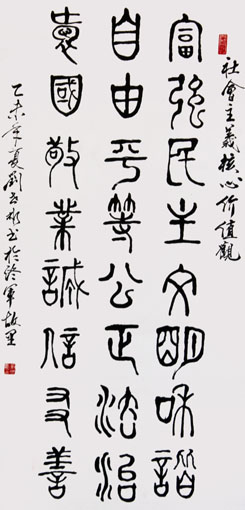 社會主義核心价值觀
富強民主文明和諧
自由平等公正法治
愛國敬業誠信友善
乙未年夏劉書於終軍故里